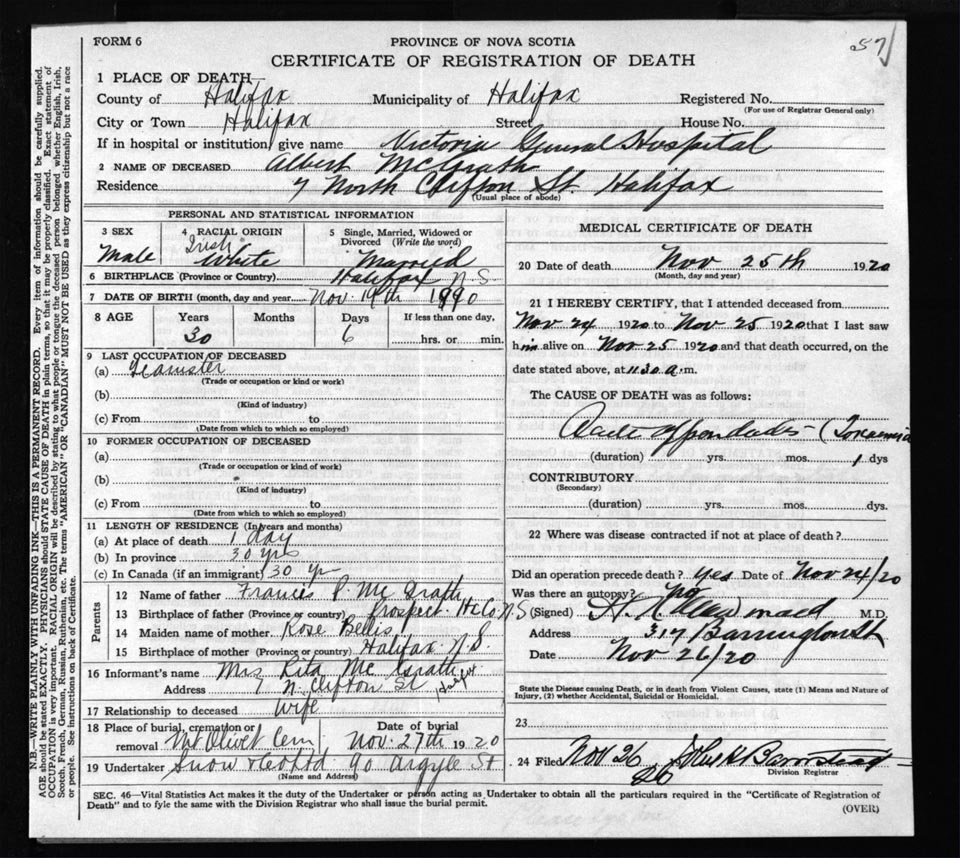 57
FORM 6
PROVINCE OF NOVA SCOTIA
CERTIFICATE OF REGISTRATION OF DEATH
1 PLACE OF DEATH—
County of Halifax Municipality of Halifax Registered No.
(For use of Registrar General only)
City or Town Halifax Street House No.
If in hospital or institution, give name Victoria General Hospital
2 NAME OF DECEASED Albert McGrath
Residence 7 North Clifton St. Halifax
(Usual place of abode)
PERSONAL AND STATISTICAL INFORMATION
3 SEX 4 RACIAL ORIGIN 5 Single, Married, Widowed or Divorced (Write the word)
Male Irish White Married
6 BIRTHPLACE (Province or Country) Halifax N S
7 DATE OF BIRTH (month, day and year) Nov. 19th 1890
8 AGE Years Months Days If less than one day,
30 6 hrs. or min.
9 LAST OCCUPATION OF DECEASED
(a) Teamster
(Trade or occupation or kind or work)
(b)
(Kind of industry)
(c) From to
(Date from which to which so employed)
10 FORMER OCCUPATION OF DECEASED
(a)
(Trade or occupation or kind of work)
(b)
(Kind of industry)
(c) From to
(Date from which to which so employed)
11 LENGTH OF RESIDENCE (In years and months)
(a) At place of death 1 day
(b) In province 30 yrs
(c) In Canada (if an immigrant) 30 yr
Parents
12 Name of father Francis P. McGrath
13 Birthplace of father (Province or country) Prospect Hx Co N S
14 Maiden name of mother Rose Bellis
15 Birthplace of mother (Province or country) Halifax N.S.
16 Informant's name Mrs Rita McGrath
Address 7 N. Clifton St
17 Relationship to deceased Wife
18 Place of burial, cremation or removal Mt Olivet Cem Date of burial Nov. 27th 1920
19 Undertaker Snow 90 Argyle St
(Name and Address)
MEDICAL CERTIFICATE OF DEATH
20 Date of death Nov 25th 1920
(Month, day and year)
21 I HEREBY CERTIFY, that I attended deceased from
Nov 24 1920 to Nov 25 1920 that I last saw
him alive on Nov 25 1920 and that death occurred, on the
date stated above, at 11.30 a.m.
The CAUSE OF DEATH was as follows:
Acute (Toxaemia
(duration) yrs. mos. 1 dys
CONTRIBUTORY
(Secondary)
(duration) yrs. mos. dys.
22 Where was disease contracted if not at place of death?
Did an operation precede death? Yes Date of Nov 24/20
Was there an autopsy? No
(Signed) M.D.
Address 317 Barrington St
Date Nov 26/20
State the Disease causing Death, or in death from Violent Causes, state (1) Means and Nature of
Injury, (2) whether Accidental, Suicidal or Homicidal.
23
24 Filed Nov 26 20 John H Barnstead
Division Registrar
SEC. 46—Vital Statistics Act makes it the duty of the Undertaker or person acting as Undertaker to obtain all the particulars required in the "Certificate of Registration of
Death" and to fyle the same with the Division Registrar who shall issue the burial permit.
(OVER)
N.B.—WRITE PLAINLY WITH UNFADING INK—THIS IS A PERMANENT RECORD. Every item of information should be carefully supplied.
AGE should be stated EXACTLY. PHYSICIANS should STATE CAUSE OF DEATH in plain terms, so that it may be properly classified. Exact statement of
OCCUPATION is very important. RACIAL ORIGIN will be described by stating to what people or tongue the deceased person belonged, whether English, Irish,
Scotch, French, German, Russian, Ruthenian, etc. The terms "AMERICAN" OR "CANADIAN" MUST NOT BE USED as they express citizenship but not a race
or people. See instructions on back of Certificate.